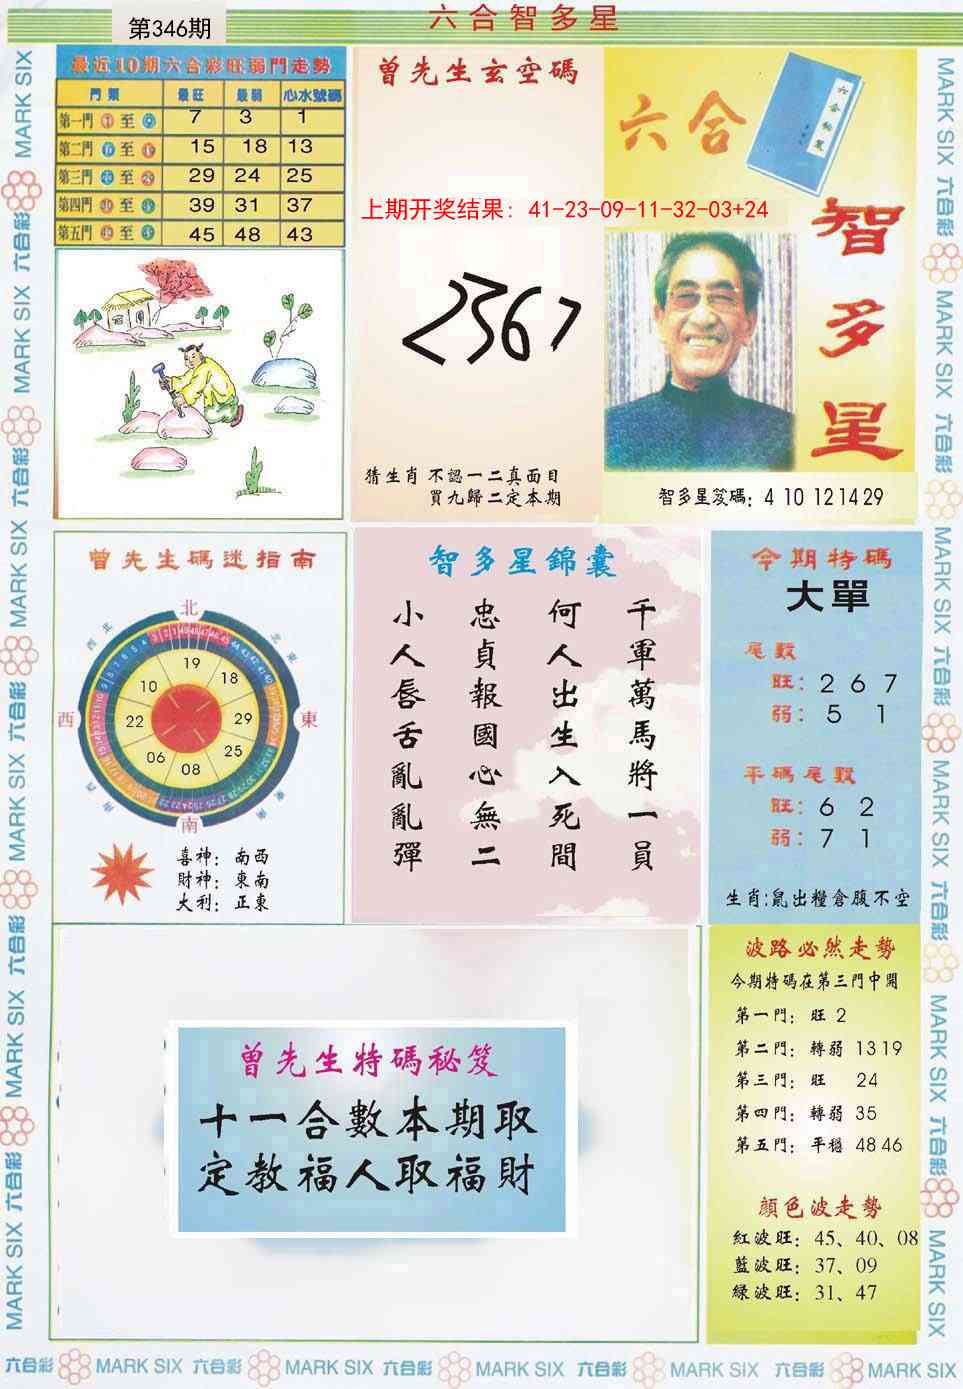 第346期
六合智多星
最近10期六合彩旺弱門走勢
門類 最旺 最弱 心水號碼
第一門 至 7 3 1
第二門 至 15 18 13
第三門 至 29 24 25
第四門 至 39 31 37
第五門 至 45 48 43
曾先生玄空碼
上期开奖结果：41-23-09-11-32-03+24
2367
猜生肖 不認一二真面目
買九歸二定本期
六合
智多星
智多星笈碼：4 10 12 14 29
曾先生碼迷指南
北
西北
東北
西
東
西南
東南
南
19
18
29
25
08
06
22
10
喜神：南西
財神：東南
大利：正東
智多星錦囊
千軍萬馬將一員
何人出生入死間
忠貞報國心無二
小人唇舌亂亂彈
今期特碼
大單
尾數
旺：2 6 7
弱：5 1
平碼尾數
旺：6 2
弱：7 1
生肖：鼠出糧倉腹不空
曾先生特碼秘笈
十一合數本期取
定教福人取福財
波路必然走勢
今期特碼在第三門中開
第一門：旺 2
第二門：轉弱 13 19
第三門：旺 24
第四門：轉弱 35
第五門：平穩 48 46
顔色波走勢
紅波旺：45、40、08
藍波旺：37、09
綠波旺：31、47
六合彩 MARK SIX 六合彩 MARK SIX 六合彩 MARK SIX 六合彩 MARK SIX